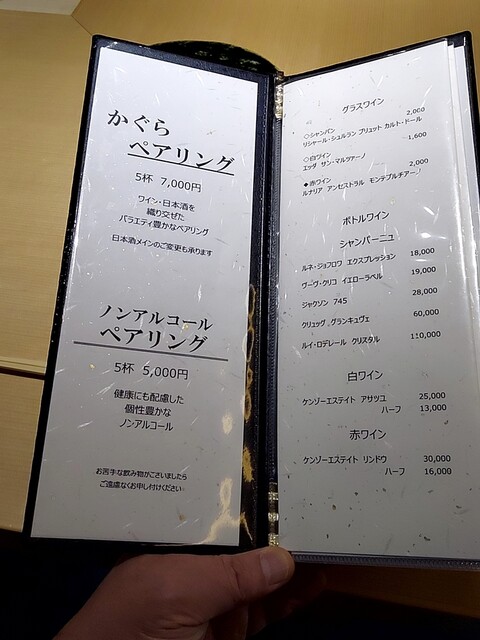 かぐら
ペアリング
5杯 7,000円
ワイン・日本酒を
織り交ぜた
バラエティ豊かなペアリング
日本酒メインのご変更も承ります
ノンアルコール
ペアリング
5杯 5,000円
健康にも配慮した
個性豊かな
ノンアルコール
お苦手な飲み物がございましたら
ご遠慮なくお申し付けください
グラスワイン
◇シャンパン 2,000
リシャール・シュルラン ブリュット カルト・ドール
◇白ワイン 1,600
エッダ サン・マルツァーノ
◆赤ワイン 2,000
ルナリア アンセストラル モンテプルチアーノ
ボトルワイン
シャンパーニュ
ルネ・ジョフロワ エクスプレッション 18,000
ヴーヴ・クリコ イエローラベル 19,000
ジャクソン 745 28,000
クリュッグ グランキュヴェ 60,000
ルイ・ロデレール クリスタル 110,000
白ワイン
ケンゾーエステイト アサツユ 25,000
ハーフ 13,000
赤ワイン
ケンゾーエステイト リンドウ 30,000
ハーフ 16,000